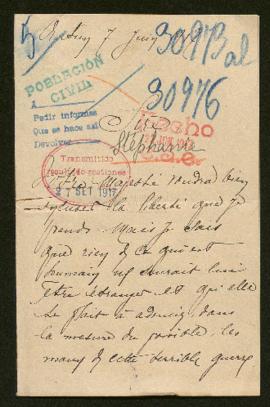 5
7 Juin
30973 al
30976
POBLACIÓN
CIVIL
A
Pedir informes
Que se hace así
Devolver
Hecho
Sire
Stéphanie
Transmitido
21 SET 1917
Votre Majesté voudra bien
excuser la liberté que je
prends. Mais je sais
que rien de ce qui est
humain ne saurait lui
être étranger et qu'elle
se plait à adoucir dans
la mesure du possible, les
maux de cette terrible guerre